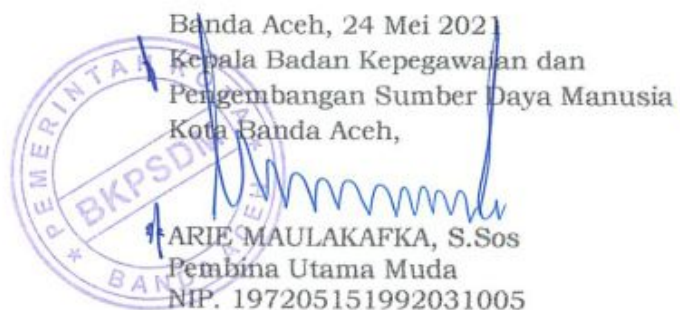 Banda Aceh, 24 Mei 2021
Kepala Badan Kepegawaian dan
Pengembangan Sumber Daya Manusia
Kota Banda Aceh,
PEMERINTAH KOTA
BKPSDM
* BANDA ACEH *
ARIE MAULAKAFKA, S.Sos
Pembina Utama Muda
NIP. 197205151992031005